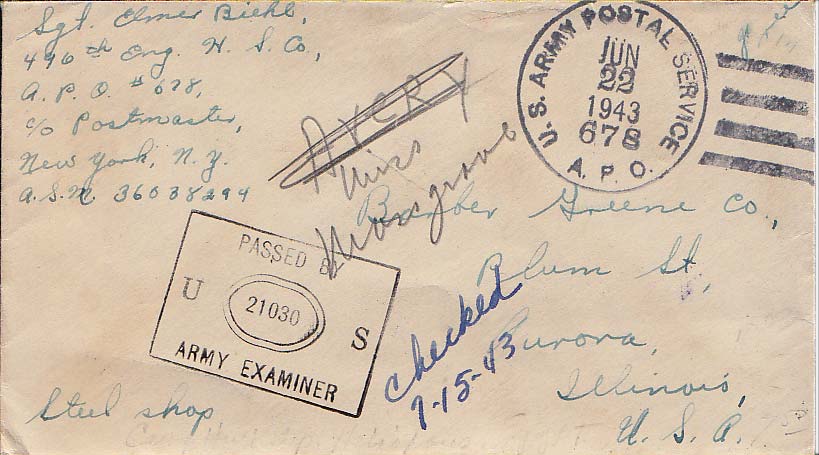 Sgt. Elmer Biehl,
496th Eng. H. S. Co.,
A. P. O. # 678,
c/o Postmaster,
New York, N. Y.
A.S.N. 36038294
Free
U. S. ARMY POSTAL SERVICE
JUN
22
1943
678
A. P. O.
AVERY
Miss
Musgrove
Barber Greene Co.,
Blum St,
Aurora,
Illinois,
U. S. A.
PASSED BY
U 21030 S
ARMY EXAMINER
checked
7-15-43
Steel shop